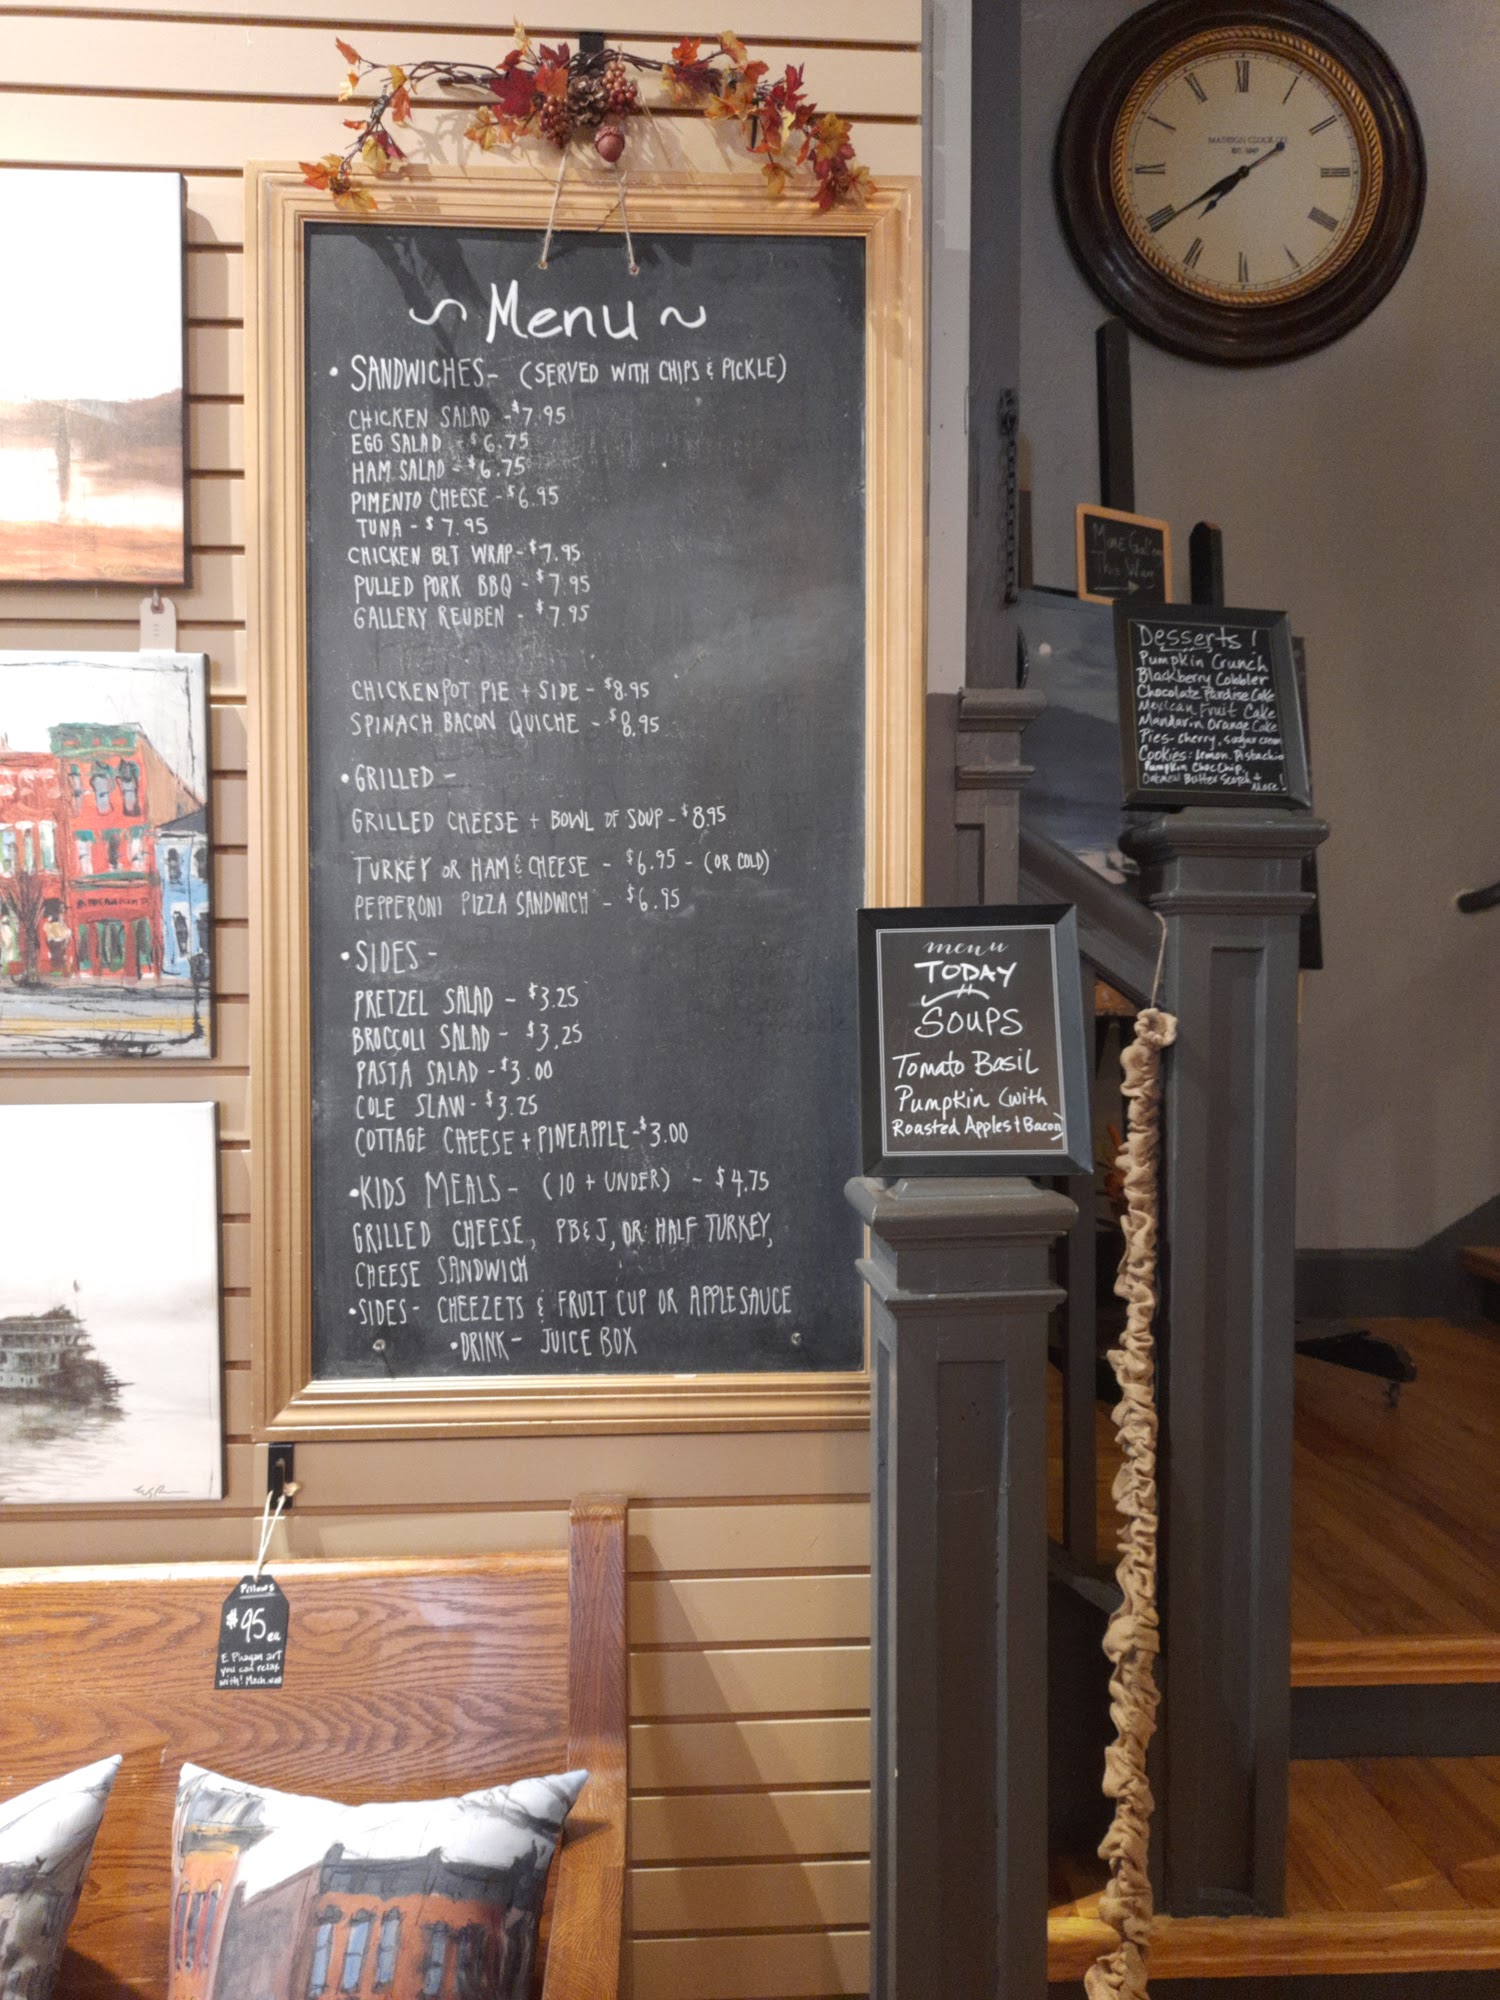 ~ Menu ~
• SANDWICHES - (SERVED WITH CHIPS & PICKLE)
CHICKEN SALAD - $7.95
EGG SALAD - $6.75
HAM SALAD - $6.75
PIMENTO CHEESE - $6.95
TUNA - $7.95
CHICKEN BLT WRAP - $7.95
PULLED PORK BBQ - $7.95
GALLERY REUBEN - $7.95
CHICKEN POT PIE + SIDE - $8.95
SPINACH BACON QUICHE - $8.95
• GRILLED -
GRILLED CHEESE + BOWL OF SOUP - $8.95
TURKEY OR HAM & CHEESE - $6.95 - (OR COLD)
PEPPERONI PIZZA SANDWICH - $6.95
• SIDES -
PRETZEL SALAD - $3.25
BROCCOLI SALAD - $3.25
PASTA SALAD - $3.00
COLE SLAW - $3.25
COTTAGE CHEESE + PINEAPPLE - $3.00
• KIDS MEALS - (10 + UNDER) - $4.75
GRILLED CHEESE, PB&J, OR HALF TURKEY,
CHEESE SANDWICH
• SIDES - CHEEZETS & FRUIT CUP OR APPLESAUCE
• DRINK - JUICE BOX
MADISON CLOCK CO.
More
This Way
Desserts!
Pumpkin Crunch
Blackberry Cobbler
Chocolate Pardise Cake
Mexican Fruit Cake
Mandarin Orange Cake
Pies - Cherry, sugar cream
Cookies: Lemon. Pistachio
Pumpkin Choc Chip,
Oatmeal Butter Scotch +
More!
menu
TODAY
SOUPS
Tomato Basil
Pumpkin (with
Roasted Apples + Bacon)
Pillows
$95 ea
art
you can relax
with!